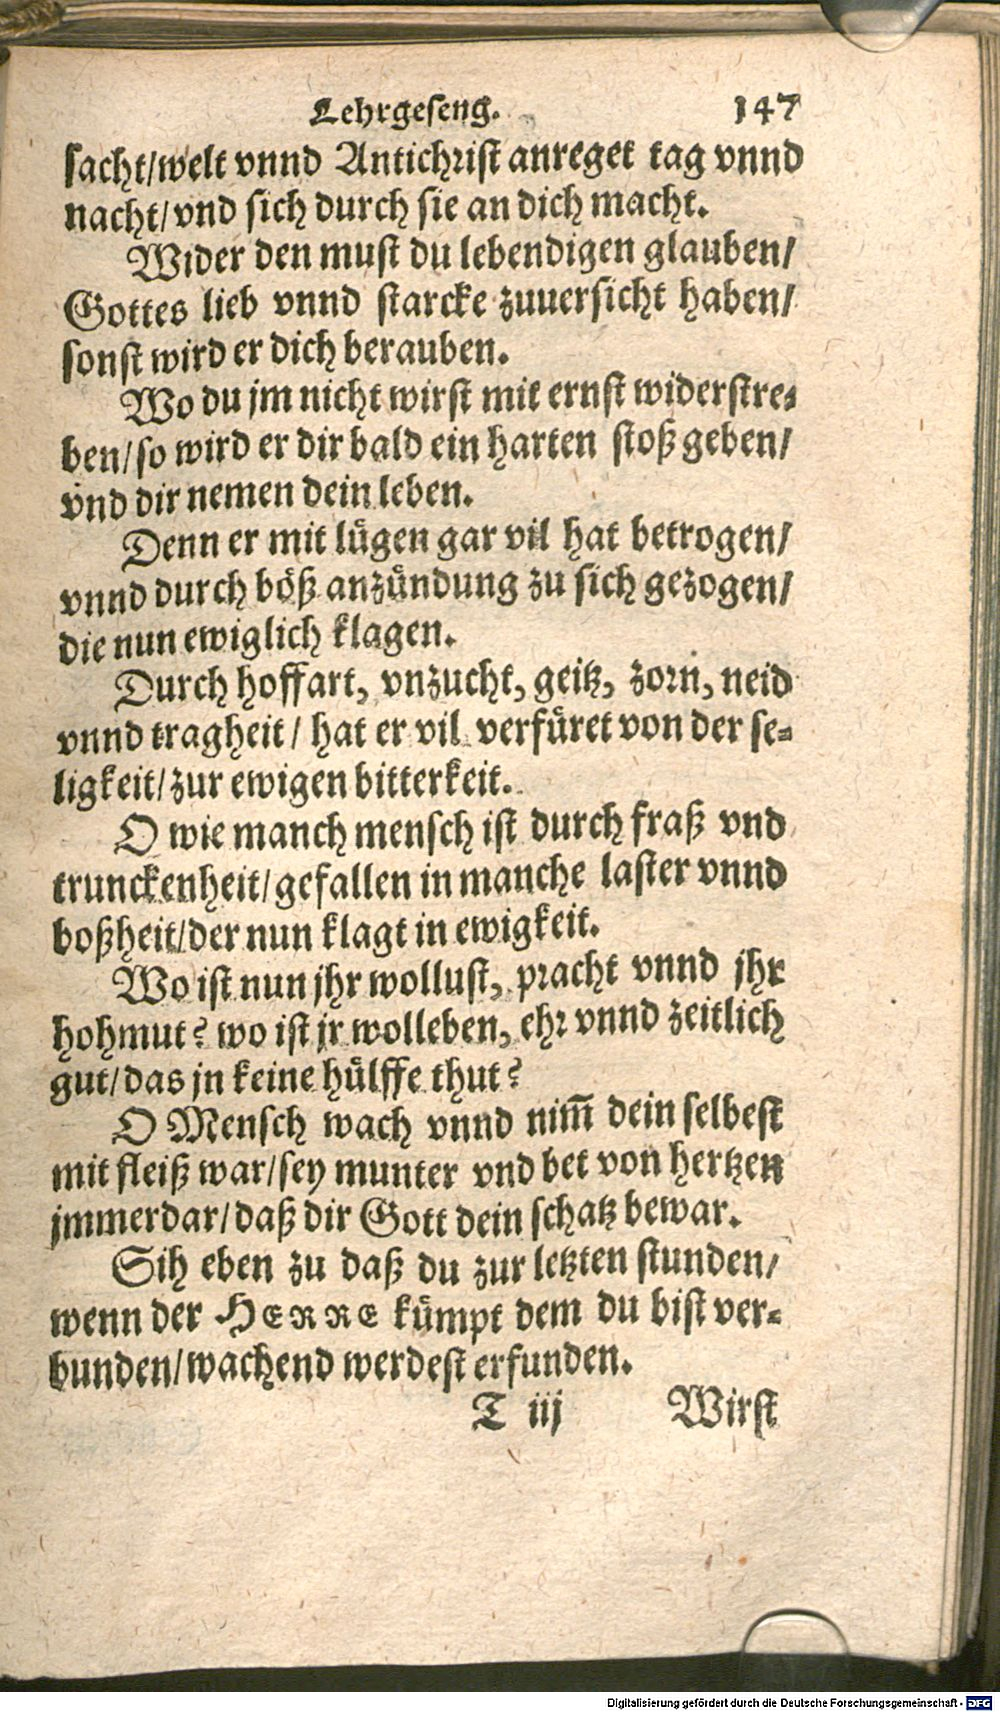 Lehrgeseng. 147
sacht/welt vnnd Antichrist anreget tag vnnd
nacht/vnd sich durch sie an dich macht.
Wider den must du lebendigen glauben/
Gottes lieb vnnd starcke zuuersicht haben/
sonst wird er dich berauben.
Wo du jm nicht wirst mit ernst widerstre-
ben/so wird er dir bald ein harten stoß geben/
vnd dir nemen dein leben.
Denn er mit lügen gar vil hat betrogen/
vnnd durch böß anzündung zu sich gezogen/
die nun ewiglich klagen.
Durch hoffart, vnzucht, geitz, zorn, neid
vnnd tragheit/ hat er vil verfüret von der se-
ligkeit/zur ewigen bitterkeit.
O wie manch mensch ist durch fraß vnd
trunckenheit/gefallen in manche laster vnnd
boßheit/der nun klagt in ewigkeit.
Wo ist nun jhr wollust, pracht vnnd jhr
hohmut? wo ist jr wolleben, ehr vnnd zeitlich
gut/das jn keine hülffe thut?
O Mensch wach vnnd nim̄ dein selbest
mit fleiß war/sey munter vnd bet von hertzen
jmmerdar/daß dir Gott dein schatz bewar.
Sih eben zu daß du zur letzten stunden/
wenn der HERRE kümpt dem du bist ver-
bunden/wachend werdest erfunden.
T iij Wirst
Digitalisierung gefördert durch die Deutsche Forschungsgemeinschaft - DFG